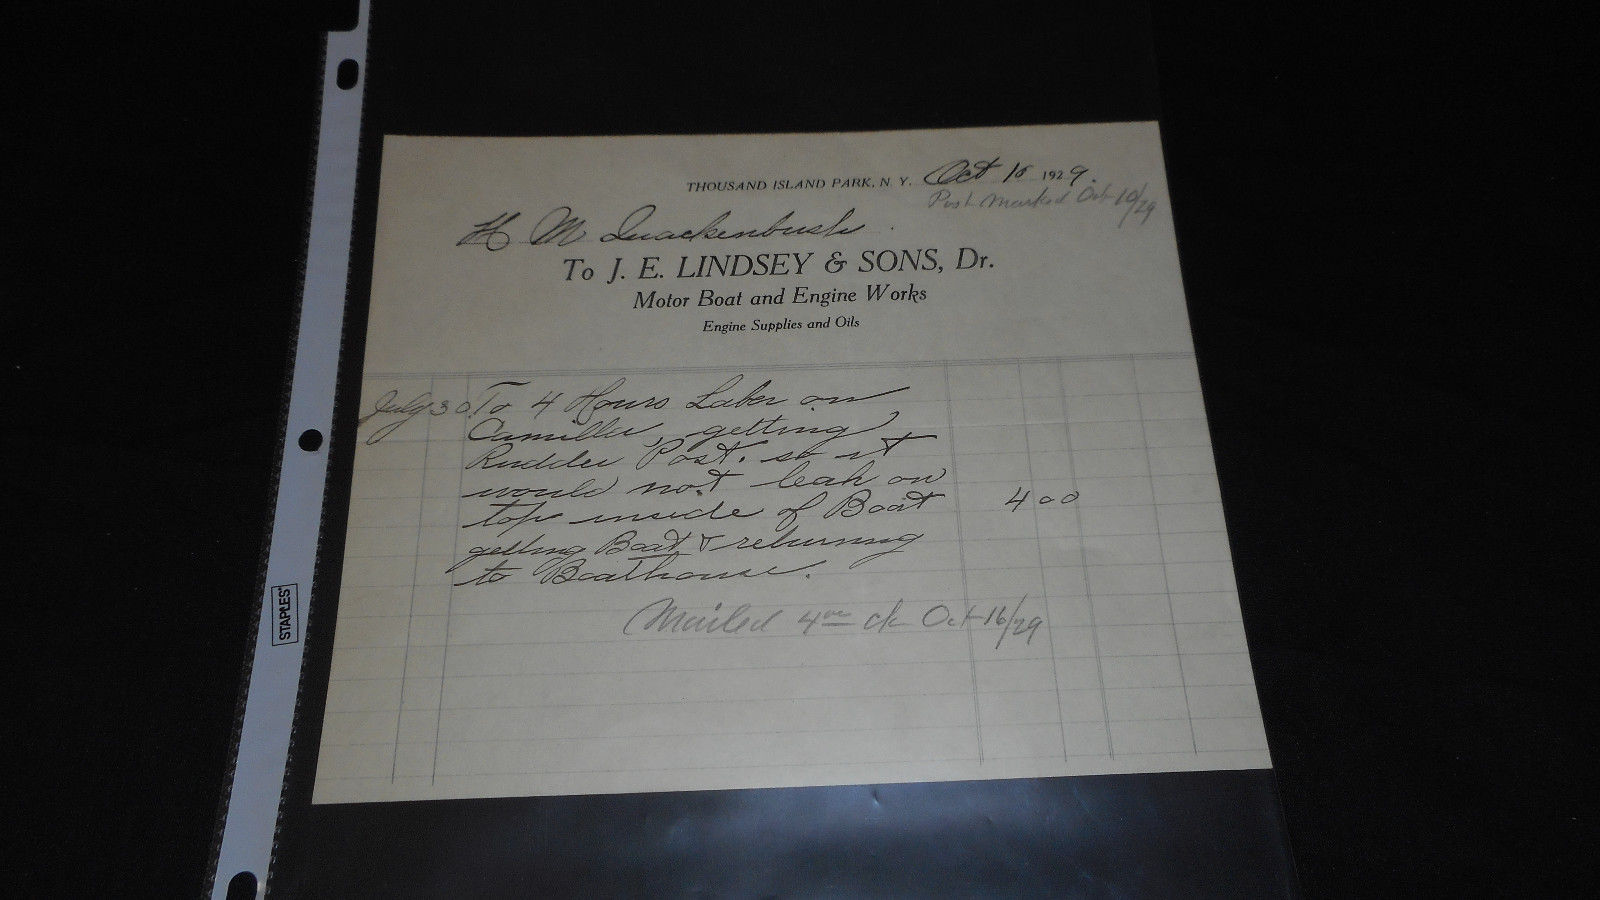 THOUSAND ISLAND PARK, N. Y. Oct 10 1929.
Post Marked Oct 10/29
H M Quackenbush
To J. E. LINDSEY & SONS, Dr.
Motor Boat and Engine Works
Engine Supplies and Oils
July 30 To 4 Hours Labor on
Camilla, getting
Rudder Post. so it
would not leak on
top inside of Boat 4 00
getting Boat & returning
to Boathouse.
Mailed 4 00 ck Oct 16/29
STAPLES